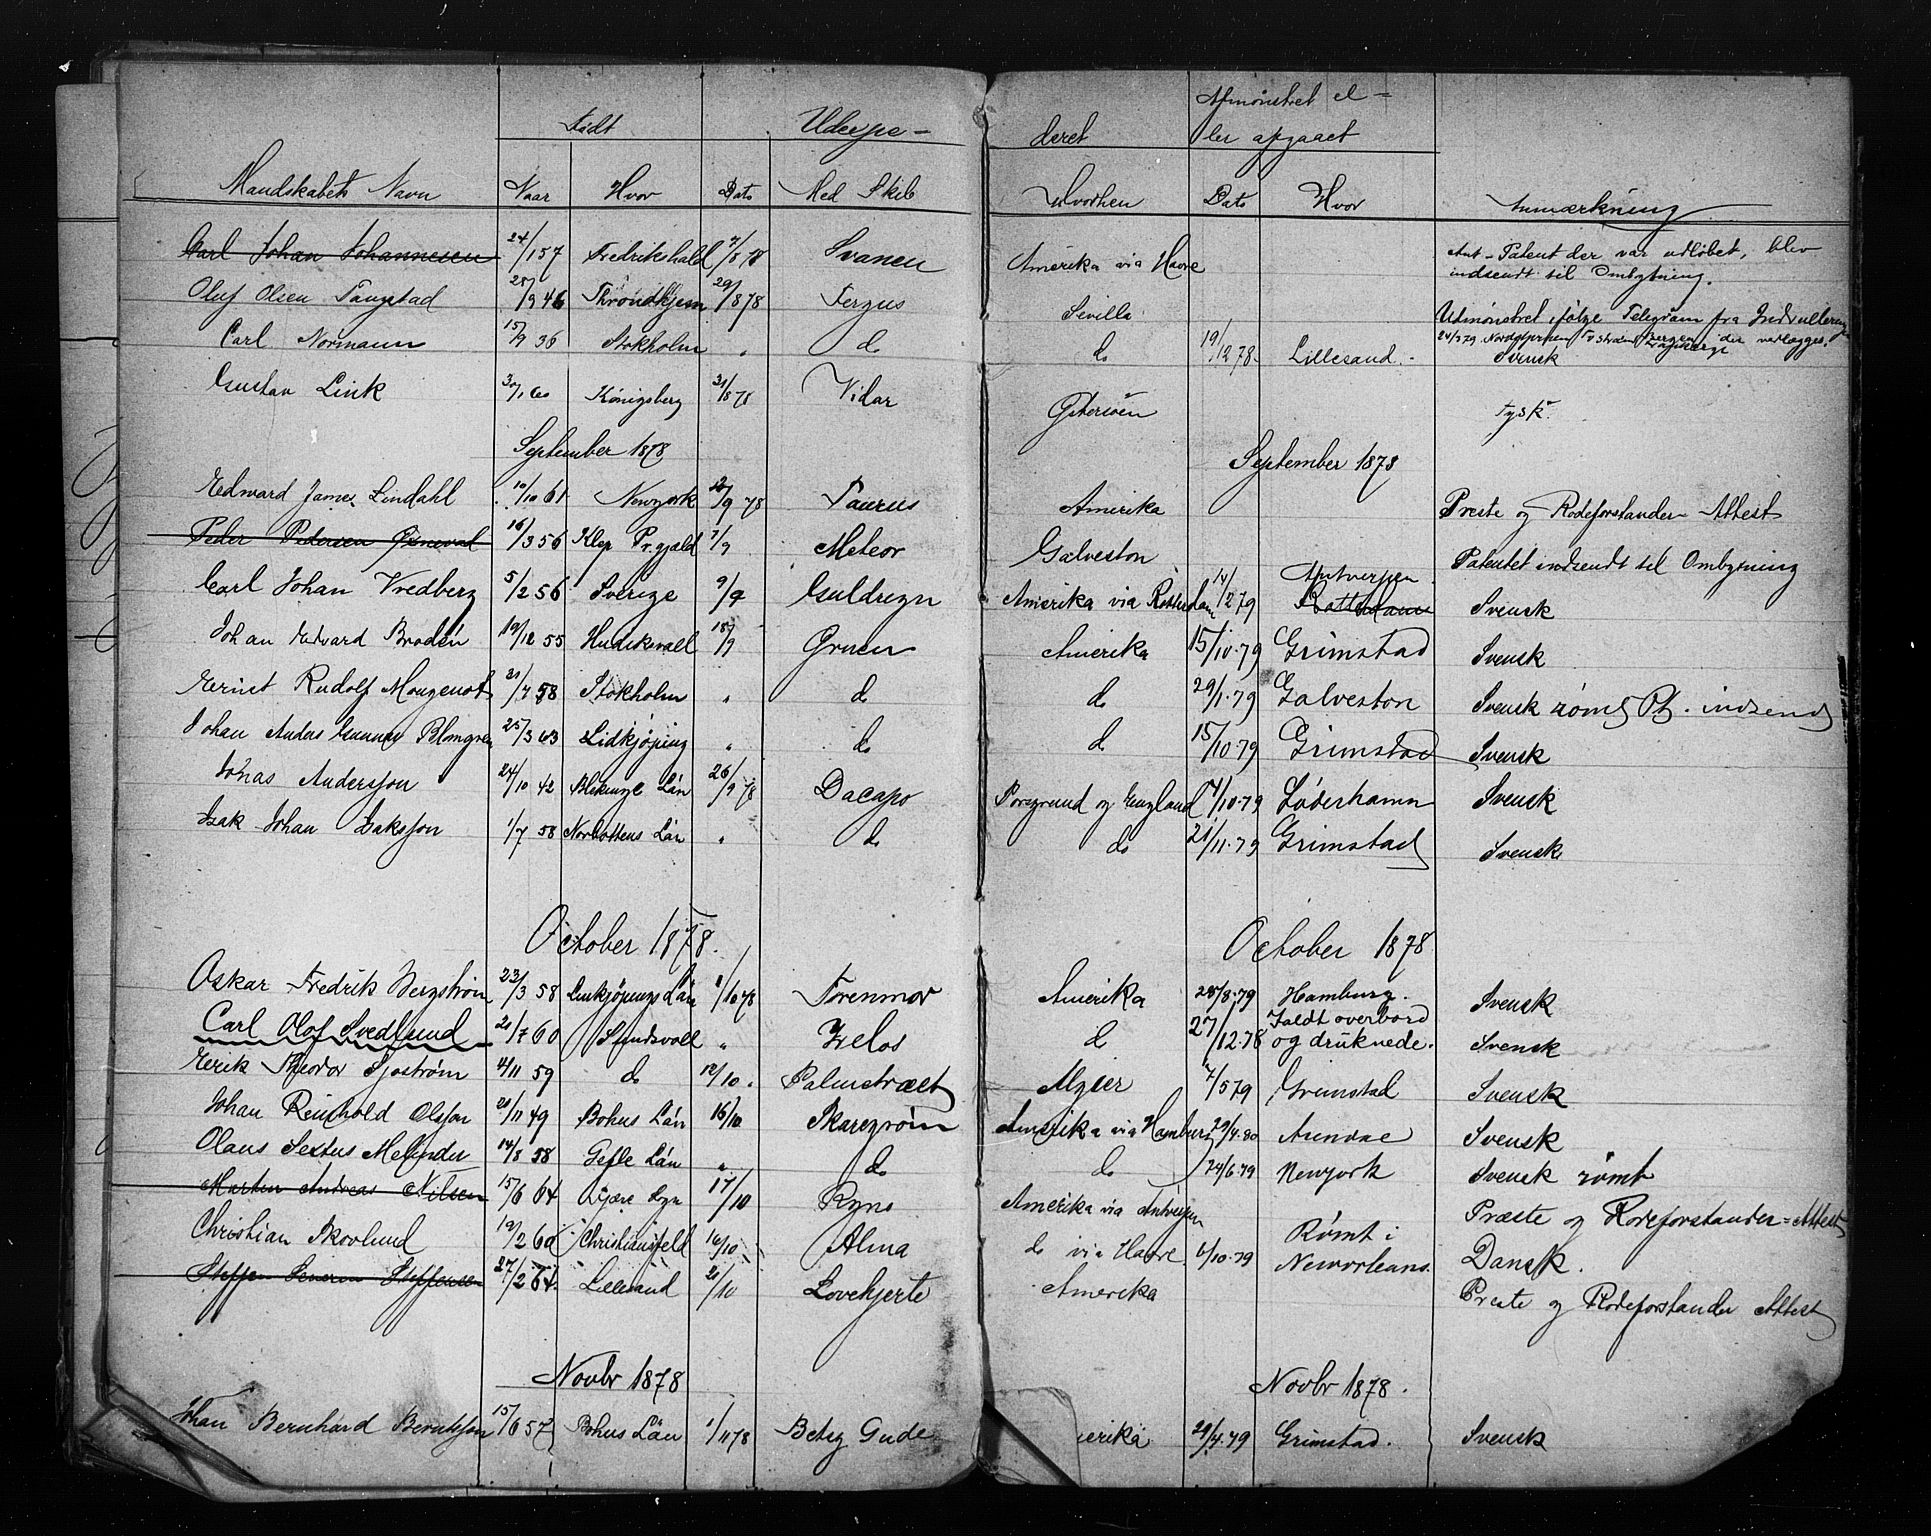 Født Udexpe- deret Afmønstret el-
ler afgaaet
Mandskabets Navn Naar Hvor Dato Med Skib Hvorhen Dato Hvor Anmærkning
Carl Johan Johannesen 24/1 57 Fredrikshald 7/8 78 Svanen Amerika via Havre Ant-Patent der var udløbet, blev
indsendt til Ombytning.
Oluf Olsen Tangstad 28/9 46 Throndhjem 29/8 78 Fergus Sevilla Udmønstret ifølge Telegram fra Indrulleringen
Carl Normann 15/9 36 Stokholm " do do 19/12 78. Lillesand. Svensk
Gustav Link 30/1 60 Königsberg 31/8 78 Vidar Østersöen Tysk.
September 1878 September 1878
Edward James Lindahl 10/10 61 Newyork 12/9 78 Taurus Amerika Preste og Rodeforstander Attest
Peder Pedersen 16/3 56 Klep Pr.gjæld 7/9 Meteor Galveston Patentet indsendt til Ombytning
Carl Johan Vredberg 5/2 56 Sverige 9/9 Guldregn Amerika via Rotterdam 14/2 79 Antverpen Rotterdam Svensk
Johan Edvard Brodén 19/12 55 Hudiksvall 18/9 Gruen Amerika 15/10.79 Grimstad Svensk
Ernst Rudolf Mougenot 21/7 58 Stokholm " do do 29/1.79 Galveston Svensk rømt Pt. indsendt
Johan Anders Gunnar Blomgren 25/3 63 Lidkjøping " do do 15/10.79 Grimstad Svensk
Jonas Andersson 24/10 42 Blekinge Län 26/9 78 Dacapo Porsgrund og England 7/10.79 Söderhamn Svensk
Isak Johan Isaksson 1/7 58 Norbottens Län " do do 21/11.79 Grimstad Svensk
October 1878. October 1878
Oskar Fredrik Bergstrøm 23/3 58 Linkjøpings Län 1/10 78 Torenmor Amerika 28/8.79 Hamburg. Svensk
Carl Olof Svedlund 20/7 60 Sundsvall " Zelos do 27/12.78 Faldt overbord
og druknede. Svensk
Erik Theodor Sjøstrøm 4/11 59 do 12/10. Palmstræet Algier 7/5 79 Grimstad Svensk
Johan Reinhold Olsson 20/11 49 Bohus Län 16/10 Skaregrøm Amerika via Hamburg 29/4.80 Arendal Svensk
Olaus Sextus Melinder 14/8 58 Gefle Län " do do 24/6.79 Newyork Svensk rømt
Martin Andreas Nilsen 15/6 64 17/10 Rgno Amerika via Antverpen Præste og Rodeforstander=Attest
Christian Skovlund 19/2 60 Christiansfeld 16/10 Alma do via Havre 6/10.79 Rømt i
Neworleans. Dansk.
Steffen Severin Steffensen 27/2 64. Lillesand 21/10 Lovehjerte Amerika Preste og Rodeforstander Attest
Novbr 1878 Novbr 1878.
Johan Bernhard Berntsson 15/6 57 Bohus Län 1/11 78 Betsy Gude erika 29/4.79 Grimstad. Svensk